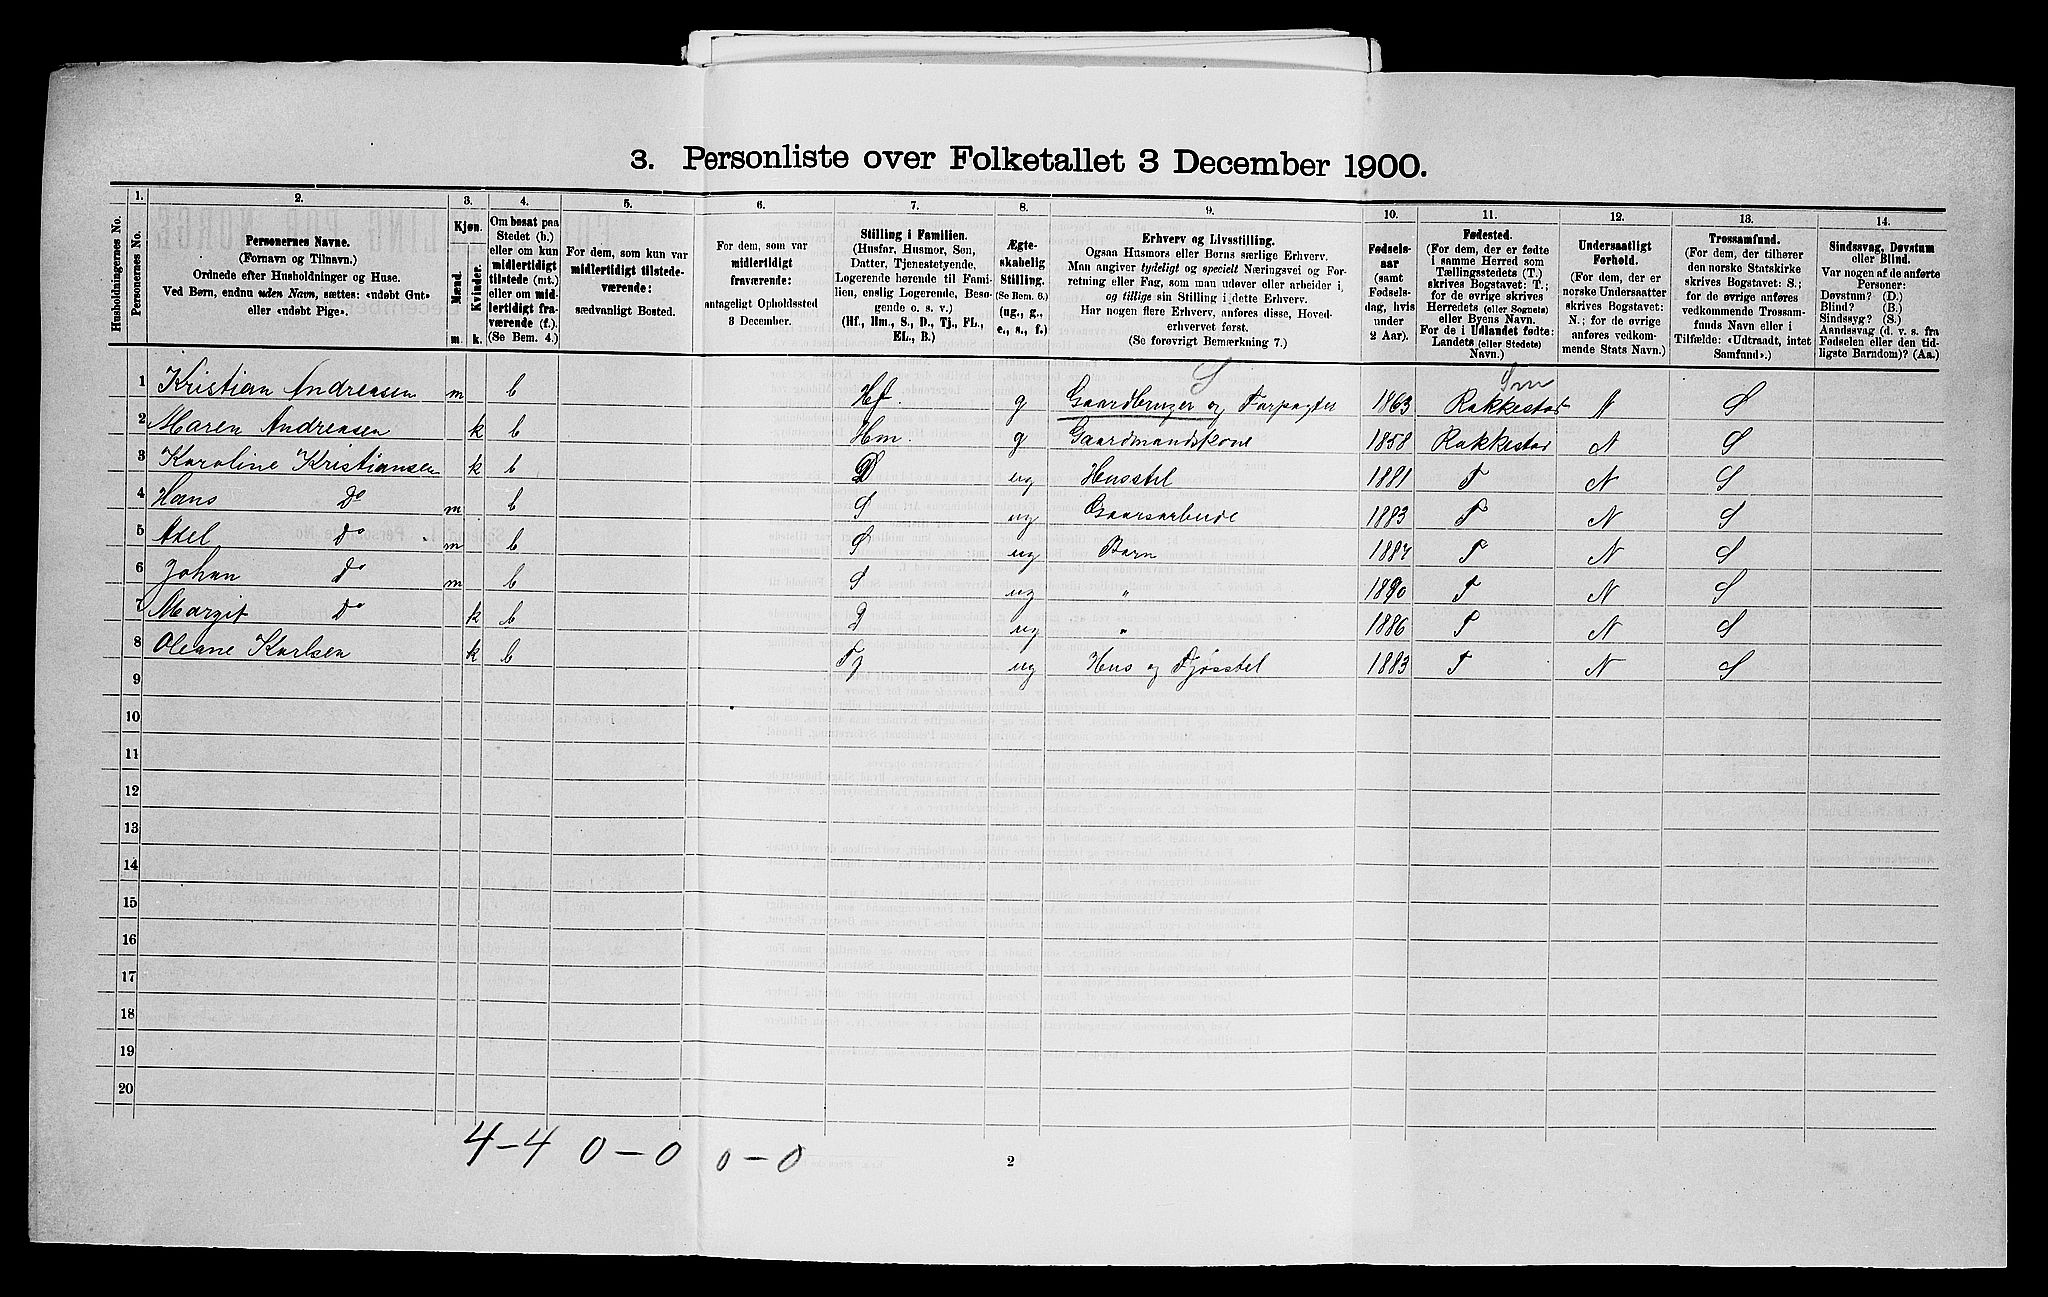 3. Personliste over Folketallet 3 December 1900.
Husholdningernes No.
1. Personernes No.
2. Personernes Navne.
(Fornavn og Tilnavn.)
Ordnede efter Husholdninger og Huse.
Ved Børn, endnu uden Navn, sættes: «udøbt Gut»
eller «udøbt Pige».
3. Kjøn.
Mænd. Kvinder.
m. k.
4.
Om bosat paa
Stedet (b.)
eller om kun
midlertidigt
tilstede (mt.)
eller om mid-
lertidigt fra-
værende (f.).
(Se Bem. 4.)
5.
For dem, som kun var
midlertidigt tilstede-
værende:
sædvanligt Bosted.
6.
For dem, som var
midlertidigt
fraværende:
antageligt Opholdssted
3 December.
7.
Stilling i Familien.
(Husfar, Husmor, Søn,
Datter, Tjenestetyende,
Logerende hørende til Fami-
lien, enslig Logerende, Besø-
gende o. s. v.)
(Hf., Hm., S., D., Tj., FL.,
EL., B.)
8.
Ægte-
skabelig
Stilling.
(Se Bem. 6.)
(ug., g.,
e., s., f.)
9.
Erhverv og Livsstilling.
Ogsaa Husmors eller Børns særlige Erhverv.
Man angiver tydeligt og specielt Næringsvei og For-
retning eller Fag, som man udøver eller arbeider i,
og tillige sin Stilling i dette Erhverv.
Har nogen flere Erhverv, anføres disse, Hoved-
erhvervet først.
(Se forøvrigt Bemærkning 7.)
10.
Fødsels-
aar
(samt
Fødsels-
dag, hvis
under
2 Aar).
11.
Fødested.
(For dem, der er fødte
i samme Herred som
Tællingsstedets (T.)
skrives Bogstavet: T.;
for de øvrige skrives
Herredets (eller Sognets)
eller Byens Navn.
For de i Udlandet fødte:
Landets (eller Stedets)
Navn.)
12.
Undersaatligt
Forhold.
(For dem, der er
norske Undersaatter
skrives Bogstavet:
N.; for de øvrige
anføres vedkom-
mende Stats Navn.)
13.
Trossamfund.
(For dem, der tilhører
den norske Statskirke
skrives Bogstavet: S.;
for de øvrige anføres
vedkommende Trossam-
funds Navn eller i
Tilfælde: «Udtraadt, intet
Samfund».)
14.
Sindssvag, Døvstum
eller Blind.
Var nogen af de anførte
Personer:
Døvstum? (D.)
Blind? (B.)
Sindssyg? (S.)
Aandssvag (d. v. s. fra
Fødselen eller den tid-
ligste Barndom)? (Aa.)
S Sm
1 Kristian Andreasen m b Hf. g Gaardbruger og Forpagter 1863 Rakkestad N S
2 Maren Andreasen k b Hm. g Gaardmandskone 1858 Rakkestad N S
3 Karoline Kristiansen k b D ug Husstel 1881 T N S
4 Hans Do m b S ug Gaarsarbeide 1883 T N S
5 Axel Do m b S ug Barn 1887 T N S
6 Johan Do m b S ug " 1890 T N S
7 Margit Do k b D ug " 1886 T N S
8 Oleane Karlsen k b Tj ug Hus og Fjøsstel 1883 T N S
9
10
11
12
13
14
15
16
17
18
19
20
4-4 0-0 0-0
2